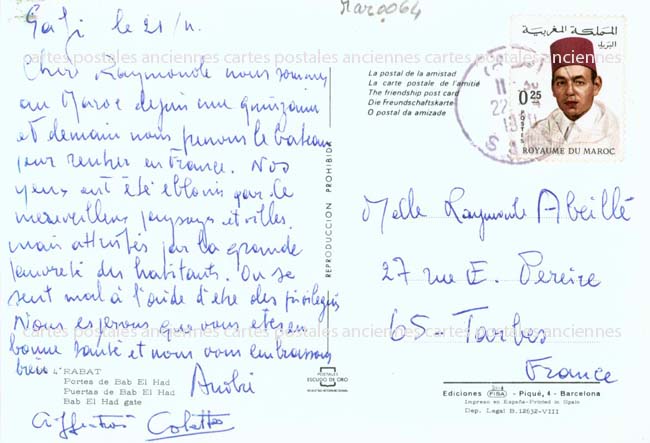 Safi le 21/11.
Chère Raymonde nous sommes
au Maroc depuis une quinzaine
et demain nous prenons le bateau
pour rentrer en France. Nos
yeux ont été éblouis par le
merveilleux paysages et villes
mais attristés par la grande
pauvreté des habitants. On se
sent mal à l'aide d'être des privilégiés
Nous espérons que vous êtes en
bonne santé et nous vous embrassons
bien
André
Affection Colette
4 RABAT
Portes de Bab El Had
Puertas de Bab El Had
Bab El Had gate
REPRODUCCION PROHIBIDA
POSTALES
ESCUDO DE ORO
Maroc064
La postal de la amistad
La carte postale de l'amitié
The friendship post card
Die Freundschaftskarte
O postal da amizade
المملكة المغربية
البريد
0.25
POSTES
ROYAUME DU MAROC
22
Melle Raymonde Abeillé
27 rue E. Pereire
65-Tarbes
France
Ediciones FISA - Piqué, 4 - Barcelona
Impreso en España-Printed in Spain
Dep. Legal B. 12632-VIII
cartes postales anciennes cartes postales anciennes cartes postales anciennes
cartes postales anciennes cartes postales anciennes cartes postales anciennes